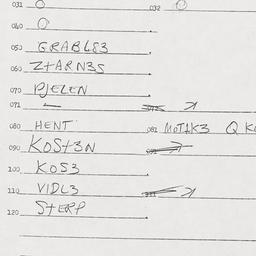 031 O 032 O
040 O
050 GRABL83
060 ZtARN3S
070 PJELEN
071
080 HENT 081 MOTIK3 Q K
090 KOSt3N
100 KOS3
110 VIDL3
120 StERP